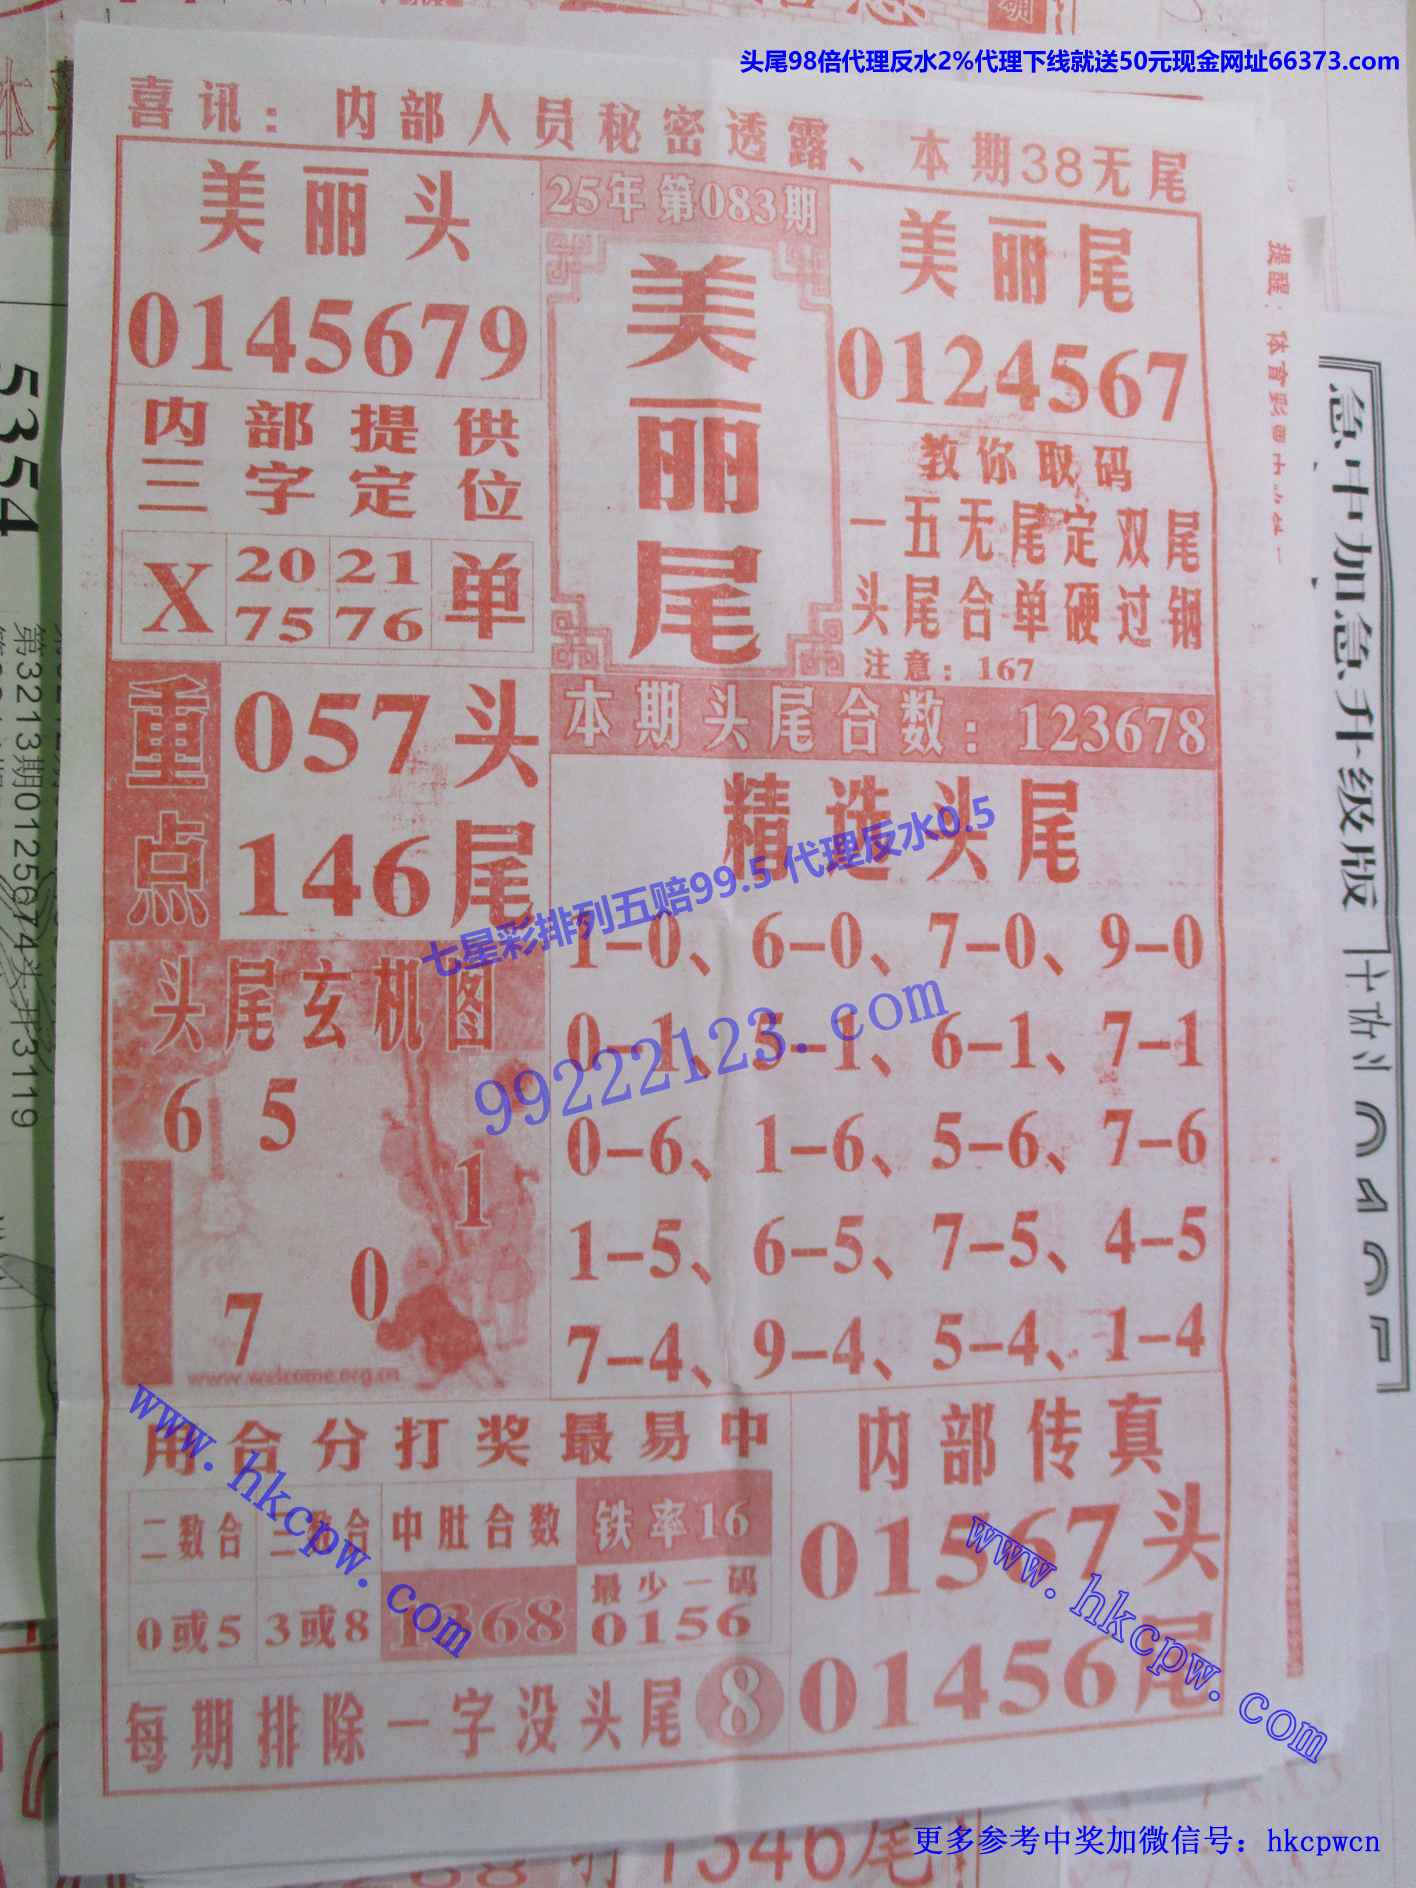 头尾98倍代理反水2%代理下线就送50元现金网址66373.com
喜讯：内部人员秘密透露、本期38无尾
美丽头
0145679
25年第083期
美丽尾
美丽尾
0124567
内部提供
三字定位
X
20
75
21
76
单
教你取码
一五无尾定双尾
头尾合单硬过钢
注意：167
重点
057头
146尾
本期头尾合数：123678
精选头尾
1-0、6-0、7-0、9-0
0-1、5-1、6-1、7-1
0-6、1-6、5-6、7-6
1-5、6-5、7-5、4-5
7-4、9-4、5-4、1-4
七星彩排列五赔99.5 代理反水0.5
99222123.com
头尾玄机图
6 5
1
0
7
www.welcome.org.cn
用合分打奖最易中
二数合
0或5
3或8
中肚合数
1368
铁率16
最少一码
0156
内部传真
01567头
01456尾
每期排除一字没头尾 8
www.hkcpw.com
www.hkcpw.com
提醒：体育彩
5354
第3213期0125674头开3119
急中加急升级版
1346尾
更多参考中奖加微信号：hkcpwcn